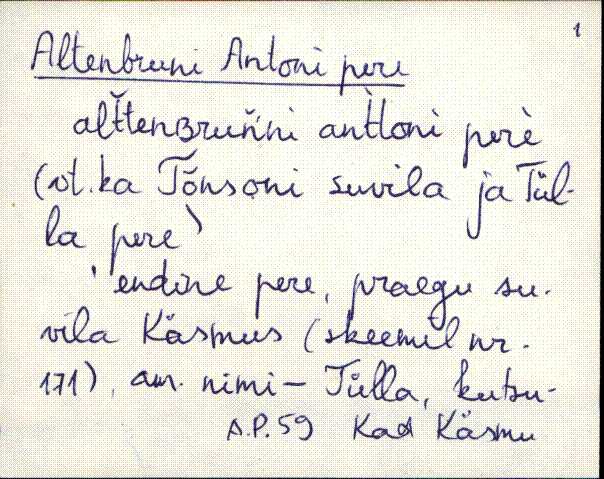 1
Altenbruni Antoni pere
alt̆tenʙruňni anttoni perè
(vt. ka Tõnsoni suvila ja Tül-
la pere)
' endine pere, praegu su-
vila Käsmus (skeemil nr.
171), am. nimi – Tülla, kutsu-
A.P. 59 Kad Käsmu